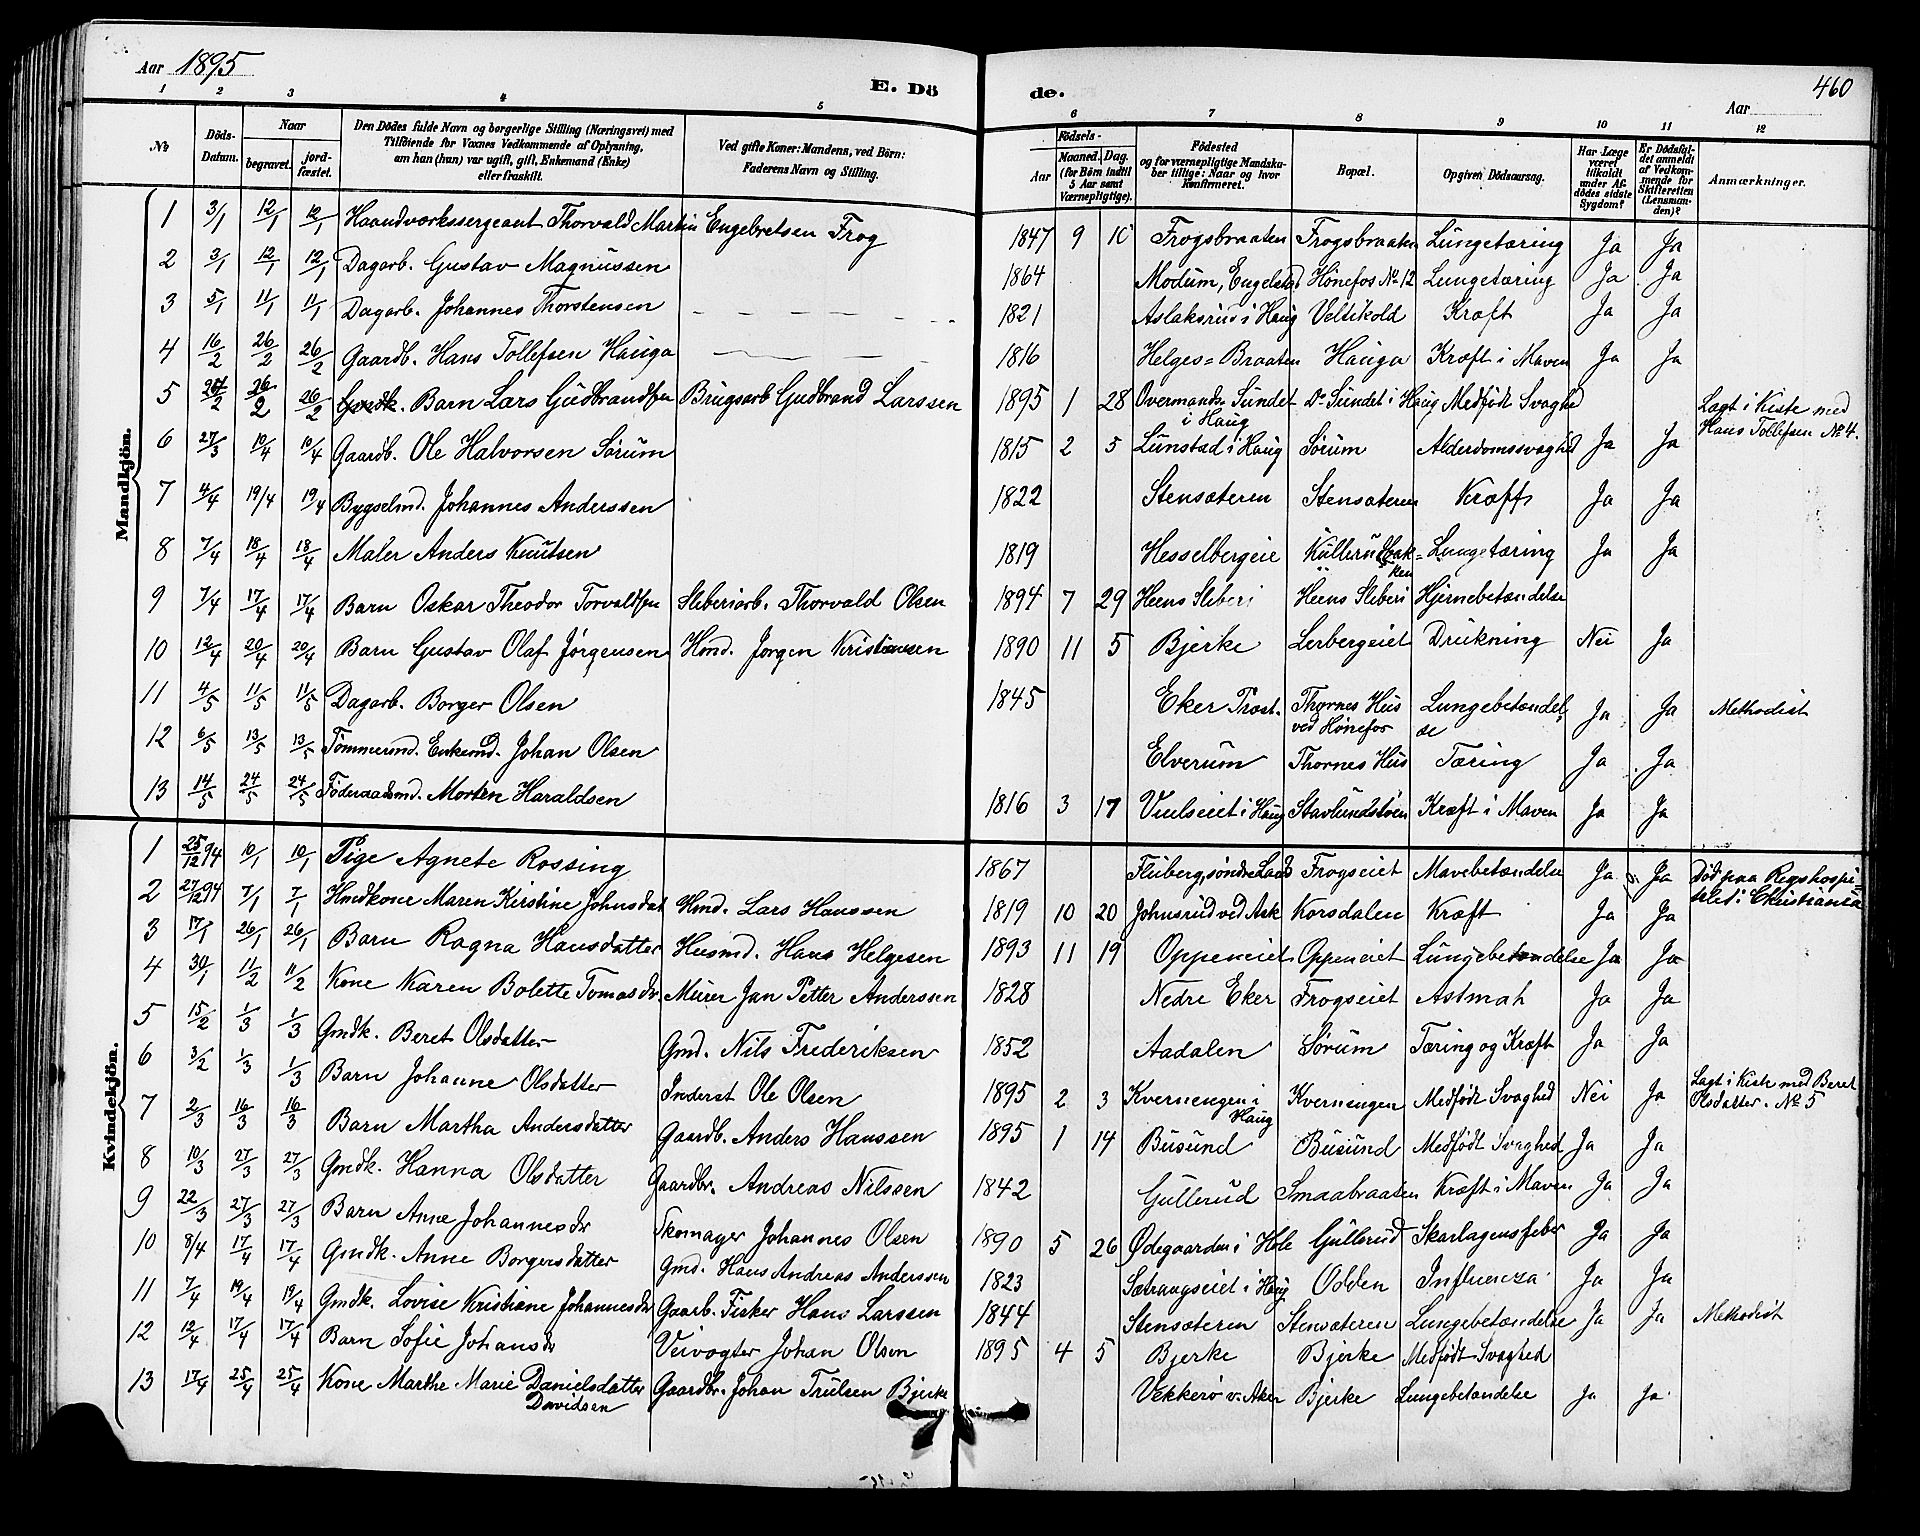 Aar 1895
E. Dö de.
460
Aar
1 2 3 4 5 6 7 8 9 10 11 12
No
Döds-Datum.
Naar
begravet.
jord-fæstet.
Den Dödes fulde Navn og borgerlige Stilling (Næringsvei) med
Tilföiende for Voxnes Vedkommende af Oplysning,
om han (hun) var ugift, gift, Enkemand (Enke)
eller fraskilt.
Ved gifte Koner: Mandens, ved Börn:
Faderens Navn og Stilling.
Födsels-
Aar
Maaned. Dag.
(for Börn indtil
5 Aar samt
Værnepligtige).
Födested
og for værnepligtige Mandska-
ber tillige: Naar og hvor
konfirmeret.
Bopæl.
Opgiven Dödsaarsag.
Har Læge
været
tilkaldt
under Af-
dödes sidste
Sygdom?
Er Dödsfal-
det anmeldt
af Vedkom-
mende for
Skifteretten
(Lensman-
den)?
Anmærkninger.
Mandkjön.
1 3/1 12/1 12/1 Haandværkssergeant Thorvald Martin Engebretsen Frog 1847 9 10 Frogsbraaten Frogsbraaten Lungetæring Ja Ja
2 3/1 12/1 12/1 Dagarb. Gustav Magnussen 1864 Modum, Hønefos No 12 Lungetæring Ja Ja
3 5/1 11/1 11/1 Dagarb. Johannes Thorstensen 1821 Aslaksrud i Haug Veltikold Kræft Ja Ja
4 16/2 26/2 26/2 Gaardb. Hans Tollefsen Hauga 1816 Helges=Braaten Hauga Kræft i Maven Ja Ja
5 26/2 26/2 Barn Lars Gudbrandsen Brugsarb Gudbrand Larssen 1895 1 28 Overmands Sundet i Haug Do Sundet i Haug Medfødt Svaghed Lagt i Kiste med
Hans Tollefsen No 4.
6 27/3 10/4 10/4 Gaardb. Ole Halvorsen Sørum 1815 2 5 Lunstad i Haug Sørum Alderdomssvaghed Ja Ja
7 4/4 19/4 19/4 Bygselmd. Johannes Anderssen 1822 Stensæteren Stensæteren Kræft Ja Ja
8 7/4 18/4 18/4 Maler Anders Knutsen 1819 Hesselbergeie Kullerudbakken Lungetæring Ja Ja
9 7/4 17/4 17/4 Barn Oskar Theodor Torvaldsen Sliberiarb. Thorvald Olsen 1894 7 29 Heens Sliberi Heens Sliberi Hjernebetændelse
10 12/4 20/4 20/4 Barn Gustav Olaf Jørgensen Hmd. Jørgen Kristiansen 1890 11 5 Bjerke Lerbergeiet Drukning Nei Ja
11 4/5 11/5 11/5 Dagarb. Borger Olsen 1845 Eker Præst. Thornes Hus
ved Hønefos Lungebetændel-
se Ja Ja Methodist
12 6/5 13/5 13/5 Tømmermd. Enkemd. Johan Olsen Elverum Thornes Hus Tæring Ja Ja
13 14/5 24/5 24/5 Føderaadsmd. Morten Haraldsen 1816 3 17 Viulseiet i Haug Stavlundstøen Kræft i Maven Ja Ja
Kvindekjön.
1 25/12 94 10/1 10/1 Pige Agnete Rossing 1867 Fluberg, søndre Land Frogseiet Mavebetændelse Ja Ja Død paa Rigshospi-
talet i Christiania
2 27/12 94 7/1 7/1 Hmdkone Maren Kirstine Johnsdat Hmd. Lars Hanssen 1819 10 20 Johnsrud ved Ask Korsdalen Kræft Ja Ja
3 17/1 26/1 26/1 Barn Ragna Hansdatter Husmd. Hans Helgesen 1893 11 19 Oppeneiet Oppeneiet Lungebetændelse Ja Ja
4 30/1 11/2 11/2 Kone Karen Bolette Tomasdr. Murer Jan Petter Anderssen 1828 Nedre Eker Frogseiet Astmah Ja Ja
5 15/2 1/3 1/3 Gmdk. Beret Olsdatter Gmd. Nils Frederiksen 1852 Aadalen Sørum Tæring og Kræft Ja Ja
6 3/2 1/3 1/3 Barn Johanne Olsdatter Inderst Ole Olsen 1895 2 3 Kvernengen i
Haug Kvernengen Medfødt Svaghed Nei Ja Lagt i Kiste med Beret
Olsdatter. No 5
7 2/3 16/3 16/3 Barn Martha Andersdatter Gaardb. Anders Hanssen 1895 1 14 Busund Busund Medfødt Svaghed Ja Ja
8 10/3 27/3 27/3 Gmdk. Hanna Olsdatter Gaardbr. Andreas Nilssen 1842 Gullerud Smaabraaten Kræft i Maven Ja Ja
9 22/3 27/3 27/3 Barn Anne Johannesdr Skomager Johannes Olsen 1890 5 26 Ødegaarden i Hole Gullerud Skarlagensfeber Ja Ja
10 8/4 17/4 17/4 Gmdk. Anne Borgersdatter Gmd. Hans Andreas Anderssen 1823 Sætrangseiet i Haug Odden Influenza Ja Ja
11 7/4 19/4 19/4 Gmdk. Lovise Kristiane Johannesdr Gaarb. Fisker Hans Larssen 1844 Stensæteren Stensæteren Lungebetændelse Ja Ja Methodist
12 12/4 17/4 17/4 Barn Sofie Johansdr Veivogter Johan Olsen 1895 4 5 Bjerke Bjerke Medfødt Svaghed
13 17/4 25/4 25/4 Kone Marthe Marie Danielsdatter
Davidsen Gaardbr. Johan Trulsen Bjerke Vekkerø v. Aker Bjerke Lungebetændelse Ja Ja